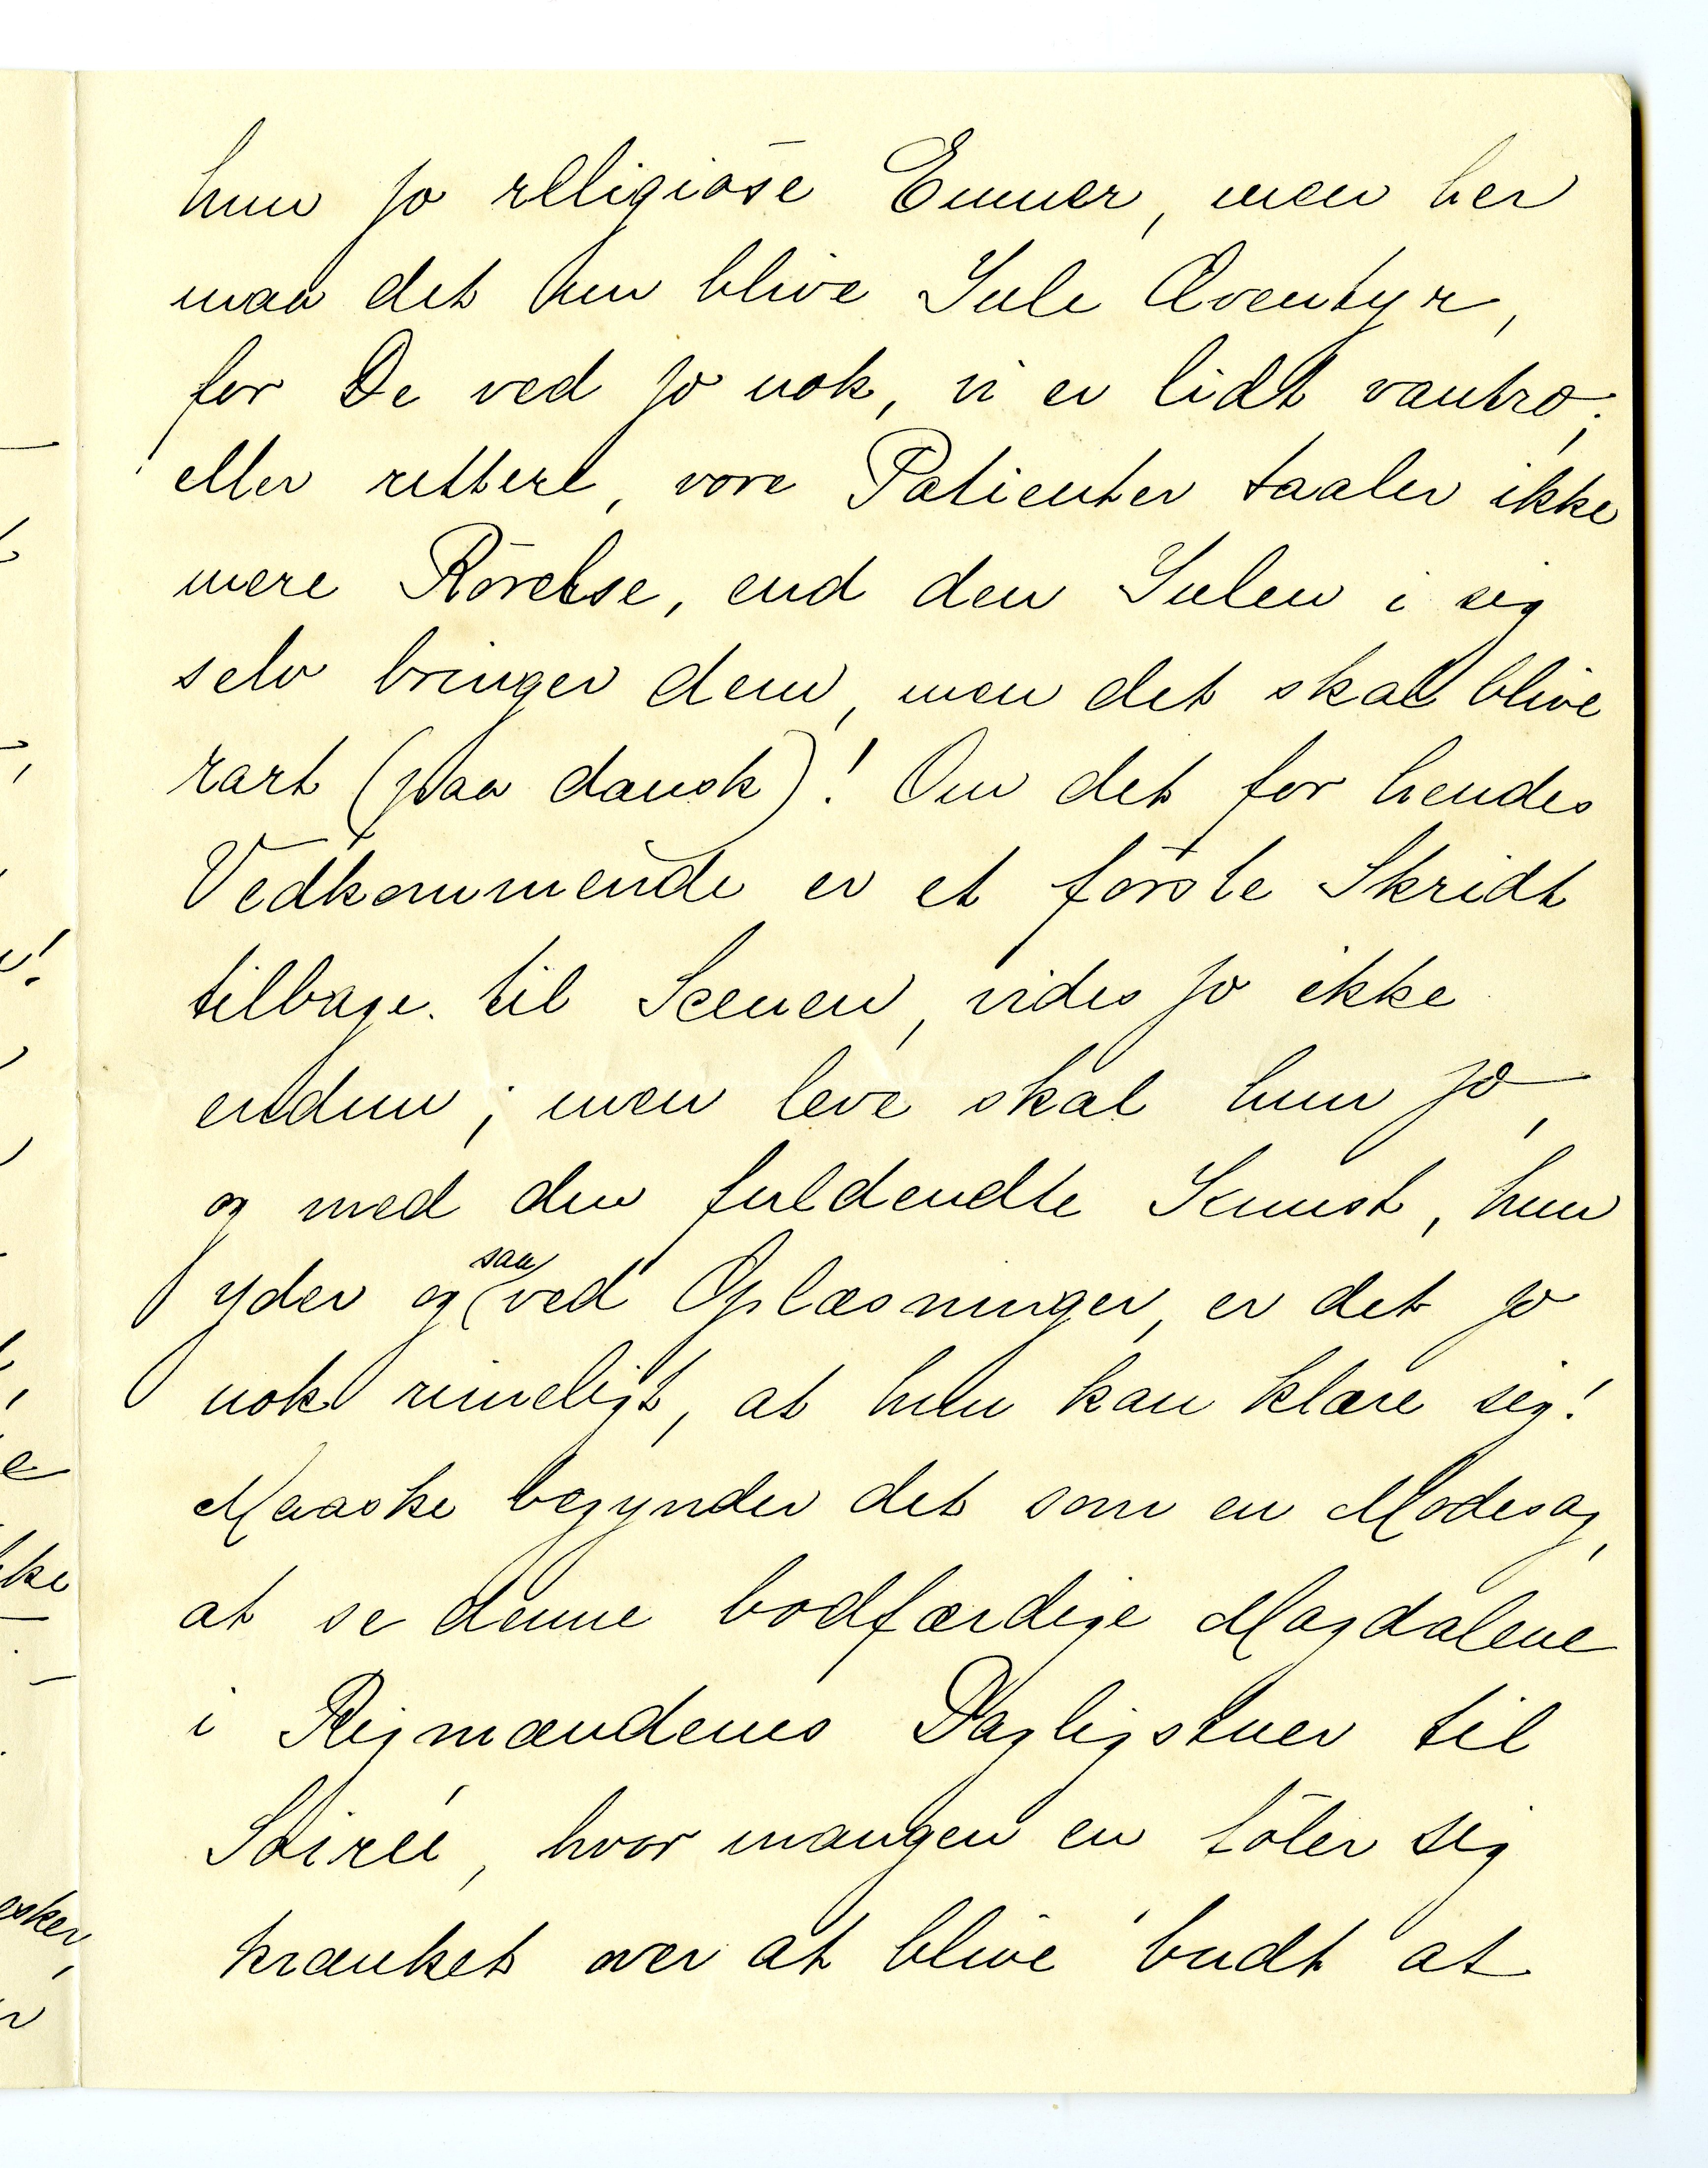 hun jo religiöse Emner, men her
maa det kun blive Jule Æventyr,
for De ved jo nok, vi er lidt vantro;
eller rettere, vore Patienter taaler ikke
mere Rörelse, end den Julen i sig
selv bringer dem, men det skal blive
rart (paa dansk)! Om det for hendes
Vedkommende er et förste Skridt
tilbage til Scenen, vides jo ikke
endnu; men leve skal hun jo,
og med den fuldendte Kunst, hun
yder ogsaa ved Oplæsninger, er det jo
nok rimeligt, at hun kan klare sig!
Maaske begynder det som en Modesag,
at se denne bodfærdige Magdalene
i Rigmændenes Dagligstuer til
Soireé, hvor mangen en föler sig
krænket over at blive budt at